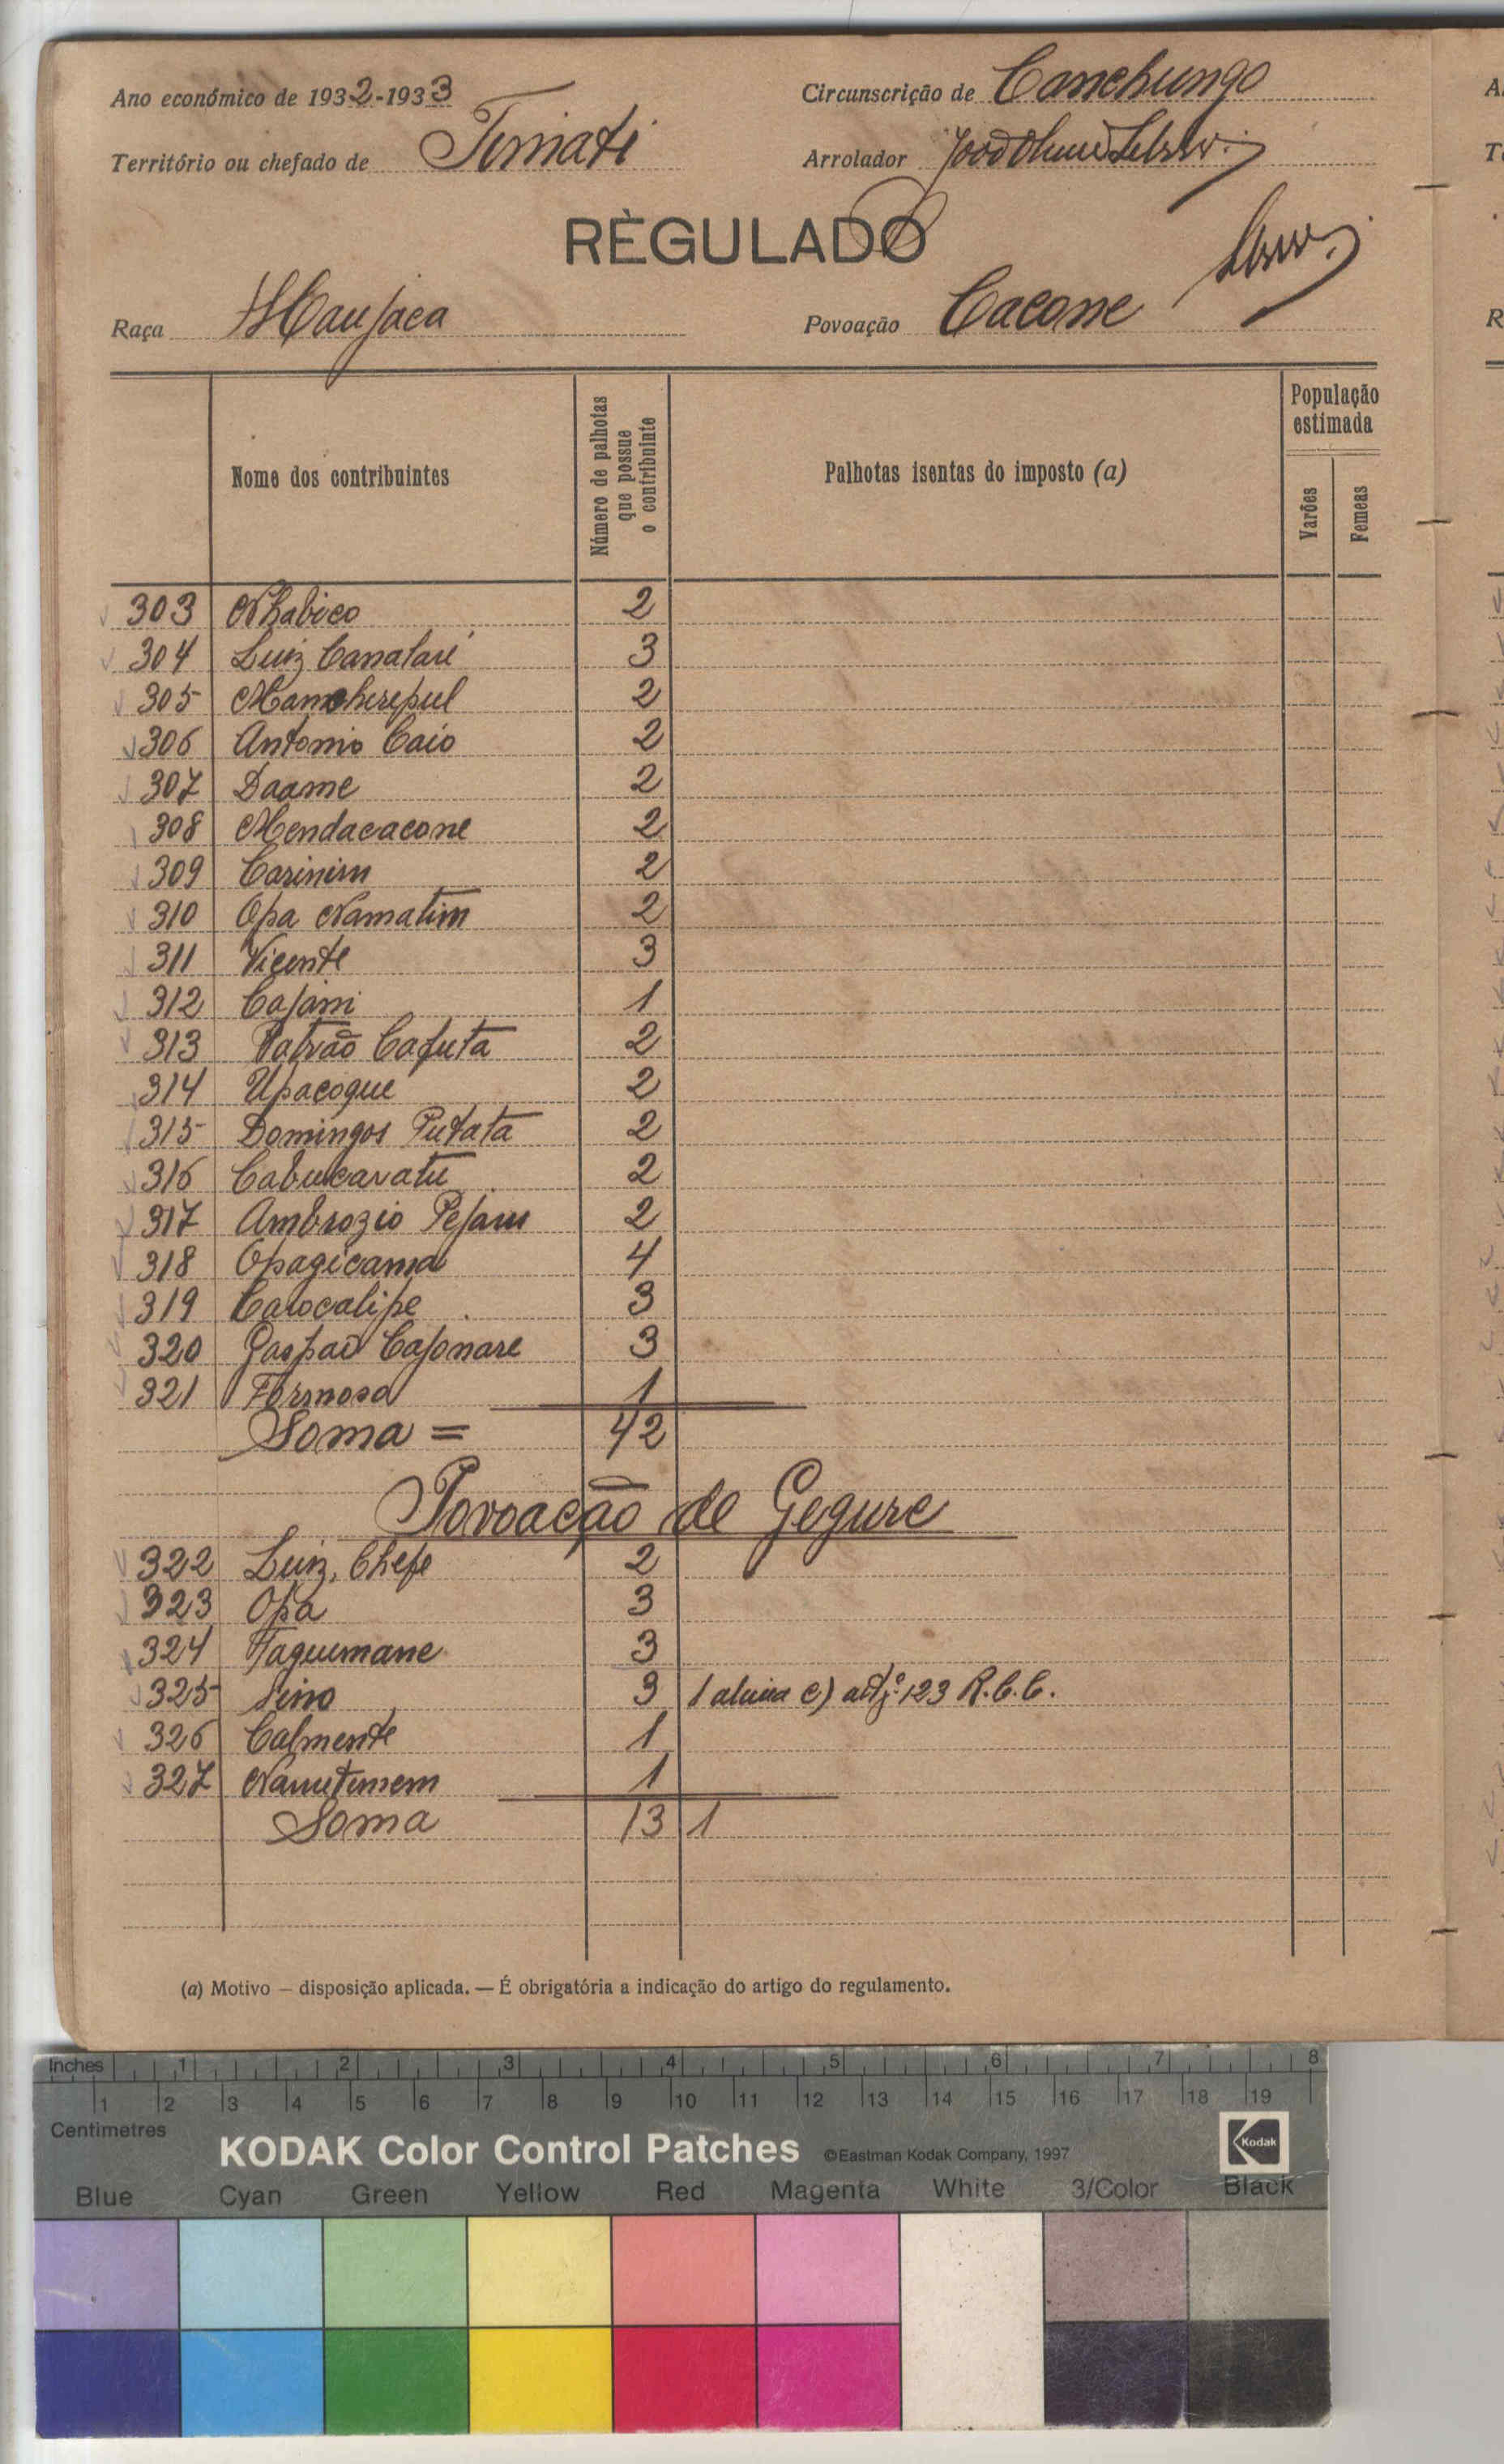 Ano económico de 1932-1933
Circunscrição de Canchungo
Território ou chefado de
Arrolador
RÈGULADO
Raça Manjaca
Povoação Cacone
Nome dos contribuintes
Número de palhotas que possue o contribuinte
Palhotas isentas do imposto (a)
População estimada
Varões
Femeas
303 Nhabico 2
304 Luiz Canalaré 3
305 2
306 Antonio Caio 2
307 Daame 2
308 Mendacacone 2
309 Carinim 2
310 Opa Namatim 2
311 Vicente 3
312 Cajami 1
313 Patrão Cafuta 2
314 Upacogue 2
315 Domingos Putata 2
316 Cabucavatu 2
317 Ambrozio 2
318 Opagicama 4
319 Carocalipe 3
320 Gaspar Cajonare 3
321 Formosa 1
Soma = 42
Povoação de Gegure
322 Luiz, Chefe 2
323 Opa 3
324 Taguemane 3
325 3 1 alinea c) 123 R.C.C.
326 Calmente 1
327 1
Soma 13 1
(a) Motivo — disposição aplicada. — É obrigatória a indicação do artigo do regulamento.
Inches 1 2 3 4 5 6 7 8
1 2 3 4 5 6 7 8 9 10 11 12 13 14 15 16 17 18 19
Centimetres
KODAK Color Control Patches ©Eastman Kodak Company, 1997 Kodak
Blue Cyan Green Yellow Red Magenta White 3/Color Black